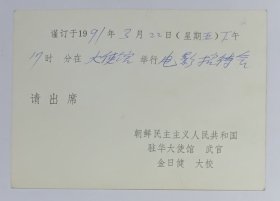 谨订于1991年3月22日(星期五)下午
17时 分在 大使馆 举行 电影招待会
请出席
朝鲜民主主义人民共和国
驻华大使馆 武官
金日健 大校